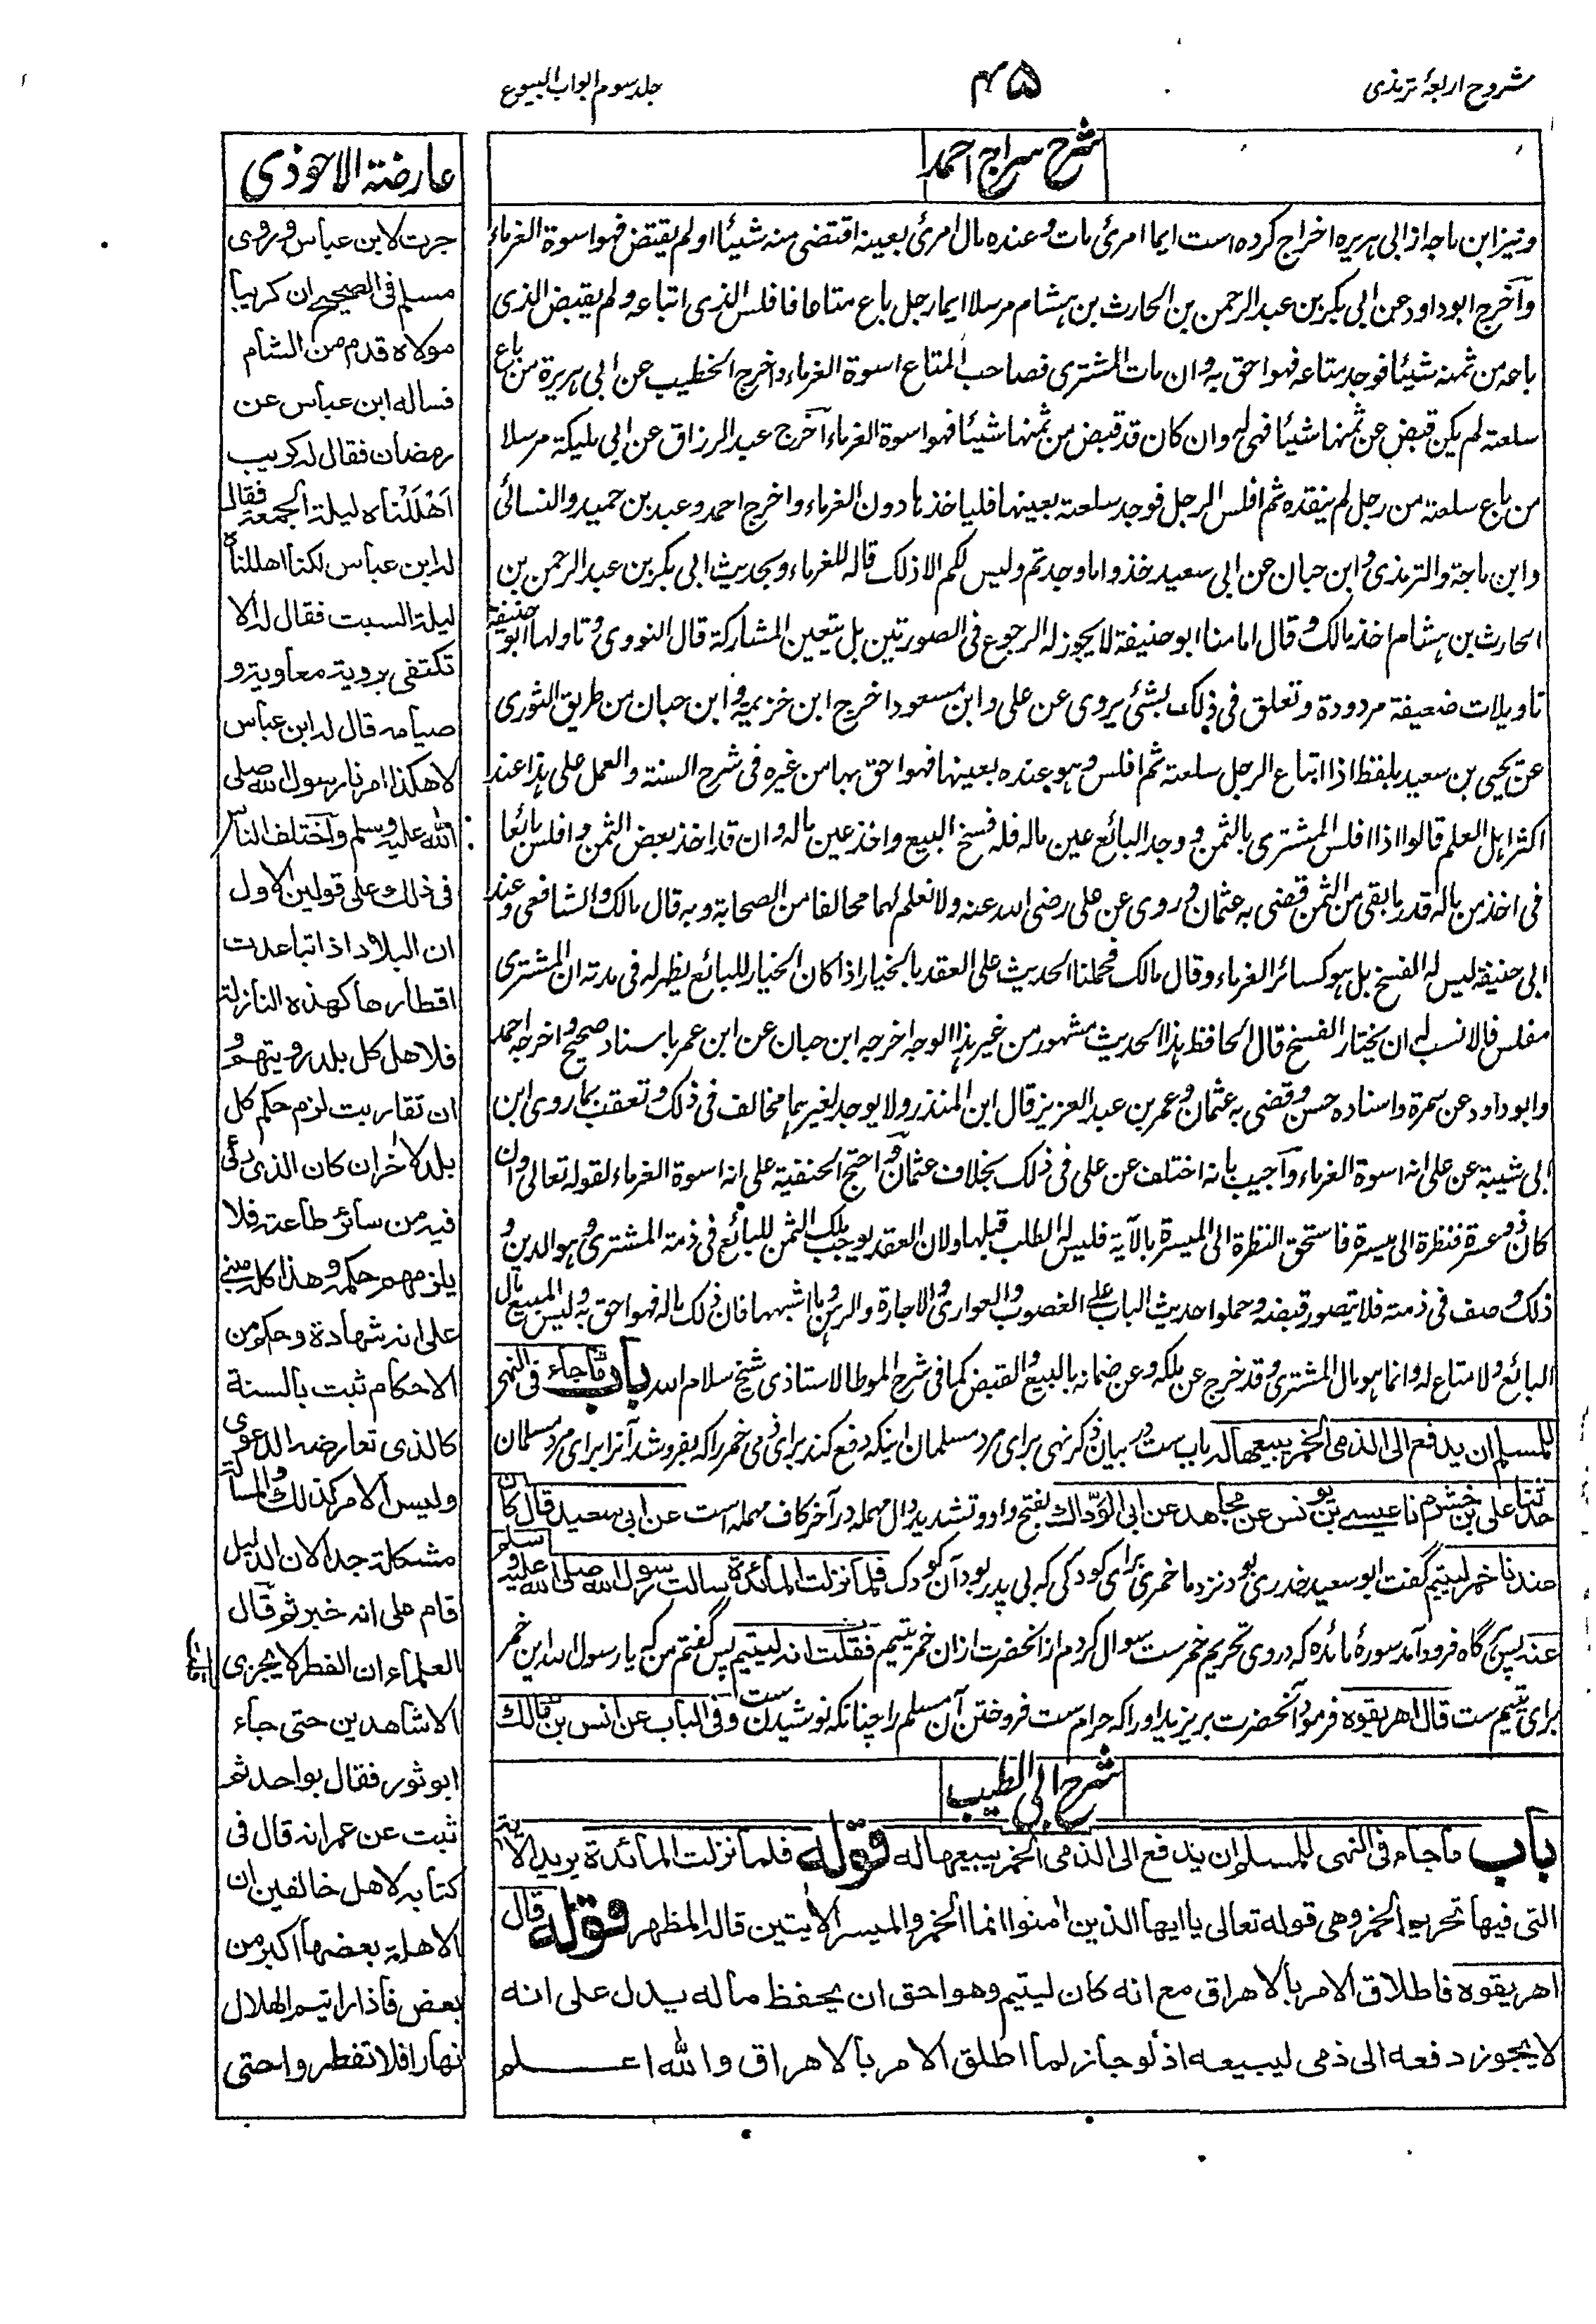 شروح اربعۂ ترمذی
۴۵
جلد سوم ابواب البیوع
شرح سراج احمد
ونیز ابن ماجہ از ابی ہریرہ اخراج کردہ است ایما امرئ مات وعندہ مال امرئ بعینہ اقتضی منہ شیئا اولم یقتض فہو اسوۃ الغرماء
وأخرج ابوداود عن ابی بکر بن عبد الرحمن بن الحارث بن ہشام مرسلا ایما رجل باع متاعا فافلس الذی ابتاعہ ولم یقبض الذی
باعہ من ثمنہ شیئا فوجد متاعہ فہو احق بہ وان مات المشتری فصاحب المتاع اسوۃ الغرماء واخرج الخطیب عن ابی ہریرۃ من باع
سلعتہ لم یکن قبض عن ثمنہا شیئا فہی لہ وان کان قد قبض من ثمنہا شیئا فہو اسوۃ الغرماء أخرج عبد الرزاق عن ابی ملیکۃ مرسلا
من باع سلعتہ من رجل لم ینقدہ ثم افلس الرجل فوجد سلعتہ بعینہا فلیاخذہا دون الغرماء واخرج احمد وعبد بن حمید والنسائی
وابن ماجۃ والترمذی وابن حبان عن ابی سعید خذوا ما وجدتم ولیس لکم الا ذلک قالہ للغرماء وبحدیث ابی بکر بن عبد الرحمن بن
الحارث بن ہشام اخذ مالک وقال امامنا ابو حنیفۃ لا یجوز لہ الرجوع فی الصورتین بل یتعین المشارکۃ قال النووی وتاولہا ابو حنیفۃ
تاویلات ضعیفۃ مردودۃ وتعلق فی ذلک بشئ یروی عن علی وابن مسعود اخرج ابن خزیمۃ وابن حبان من طریق الثوری
عن یحیی بن سعید بلفظ اذا ابتاع الرجل سلعتہ ثم افلس وہو عندہ بعینہا فہو احق بہا من غیرہ فی شرح السنۃ والعمل علی ہذا عند
اکثر اہل العلم قالوا اذا افلس المشتری بالثمن ووجد البائع عین مالہ فلہ فسخ البیع واخذ عین مالہ وان قد اخذ بعض الثمن وافلس بائعا
فی اخذ من مالہ قدر ما بقی من الثمن قضی بہ عثمان وروی عن علی رضی اللہ عنہ ولا نعلم لہما مخالفا من الصحابۃ وبہ قال مالک والشافعی وعند
ابی حنیفۃ لیس لہ الفسخ بل ہو کسائر الغرماء وقال مالک فحملنا الحدیث علی العقد بالخیار اذا کان الخیار للبائع یظہر لہ فی مدتہ ان المشتری
مفلس فالانسب لہ ان یختار الفسخ قال الحافظ ہذا الحدیث مشہور من غیر ہذا الوجہ اخرجہ ابن حبان عن ابن عمر باسناد صحیح واخرجہ احمد
وابوداود عن سمرۃ واسنادہ حسن وقضی بہ عثمان وعمر بن عبد العزیز قال ابن المنذر ولا یوجد لغیرہما مخالف فی ذلک وتعقب بما روی ابن
ابی شیبۃ عن علی انہ اسوۃ الغرماء وأجیب بانہ اختلف عن علی فی ذلک بخلاف عثمان واحتج الحنفیۃ علی انہ اسوۃ الغرماء لقولہ تعالی وان
کان ذو عسرۃ فنظرۃ الی میسرۃ فاستحق النظرۃ الی المیسرۃ بالآیۃ فلیس لہ الطلب قبلہا ولان العقد یوجب ملک الثمن للبائع فی ذمۃ المشتری وہو الدین و
ذلک وصف فی ذمتہ فلا یتصور قبضہ وحملوا حدیث الباب علی الغصوب والعواری والاجارۃ والرہن وما اشبہہا فان ذلک مالہ فہو احق بہ ولیس المبیع مال
البائع ولا متاع لہ وانما ہو مال المشتری وقد خرج عن ملکہ وعن ضمانہ بالبیع والقبض کما فی شرح الموطا لاستاذی شیخ سلام اللہ باب ما جاء فی النہی
للمسلم ان یدفع الی الذمی الخمر یبیعہا لہ باب ست در بیان ذکر نہی برای مرد مسلمان اینکہ دفع کند برای ذمی خمر را کہ بفروشد آنرا برای مرد مسلمان
حدثنا علی بن خشرم نا عیسی بن یونس عن مجاہد عن ابی الودّاک بفتح واو وتشدید دال مہملہ در آخر کاف مہملہ است عن ابی سعید قال کان
عندنا خمر لیتیم گفت ابو سعید خدری بود نزد ما خمری برای کودکی کہ بی پدر بود آن کودک فلما نزلت المائدۃ سالت رسول اللہ صلی اللہ علیہ وسلم
عنہ پس ہر گاہ فرود آمد سورۂ مائدہ کہ در وی تحریم خمر ست سوال کردم از آنحضرت ازان خمر یتیم فقلت انہ لیتیم پس گفتم من کہ یا رسول اللہ این خمر
برای یتیم ست قال اھریقوہ فرمود آنحضرت بریزید او را کہ حرام ست فروختن آن مسلم را چنانکہ نوشیدن ست وفی الباب عن انس بن مالک
شرح ابی الطیب
باب ما جاء فی النھی للمسلم ان یدفع الی الذمی الخمر یبیعھا لہ قولہ فلما نزلت المائدۃ یرید الآیۃ
التی فیھا تحریم الخمر وھی قولہ تعالی یا ایھا الذین امنوا انما الخمر والمیسر الآیتین قالہ المظھر قولہ قال
اھریقوہ فاطلاق الامر بالاھراق مع انہ کان لیتیم وھو احق ان یحفظ مالہ یدل علی انہ
لا یجوز دفعہ الی ذمی لیبیعہ اذ لو جاز لما اطلق الامر بالاھراق واللہ اعلم
عارضۃ الاحوذی
جرت لابن عباس وروی
مسلم فی الصحیح ان کریبا
مولاہ قدم من الشام
فسالہ ابن عباس عن
رمضان فقال لہ کریب
اَھْلَلْناہ لیلۃ الجمعۃ فقال
لہ ابن عباس لکنا اھللناہ
لیلۃ السبت فقال لہ الا
تکتفی برویۃ معاویۃ و
صیامہ قال لہ ابن عباس
لا ھکذا امرنا رسول اللہ صلی
اللہ علیہ وسلم وأختلف الناس
فی ذلک علی قولین الاول
ان البلاد اذا تباعدت
اقطارھا کھذہ النازلۃ
فلاھل کل بلد رویتھم و
ان تقاربت لزم حکم کل
بلد لاخر ان کان الذی رئی
فیہ من سائر طاعتہ فلا
یلزمھم حکمہ وھذا کلہ مبنی
علی انہ شھادۃ وحکم من
الاحکام ثبت بالسنۃ
کالذی تعارضہ الدعوی
ولیس الامر کذلک والمسالۃ
مشکلۃ جدا لان الدلیل
قام علی انہ خبر ثم قال
العلماء ان الفطر لا یجزی
الا شاھدین حتی جاء
ابو ثور فقال بواحد ثم
ثبت عن عمر انہ قال فی
کتابہ لاھل خالفین ان
الاھلۃ بعضھا اکبر من
بعض فاذا رایتم الھلال
نھارا فلا تفطروا حتی